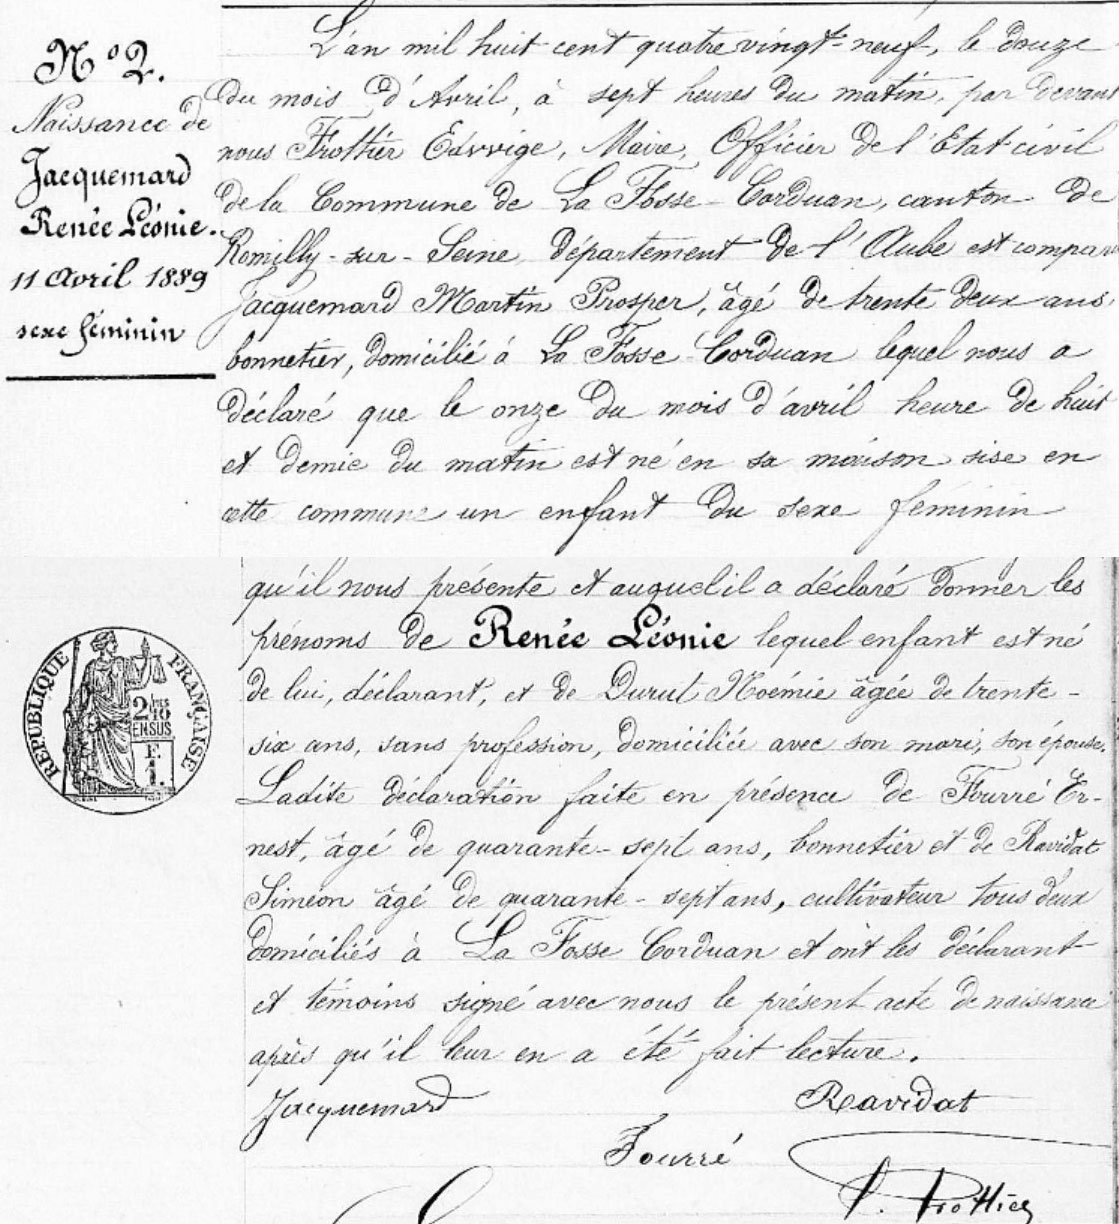 N° 2.
Naissance de
Jacquemard
Renée Léonie.
11 Avril 1889
sexe féminin
L'an mil huit cent quatre vingt-neuf, le douze
du mois d'Avril, à sept heures du matin, par devant
nous Frottier Edwige, Maire, Officier de l'Etat civil
de la Commune de La Fosse-Corduan, canton de
Romilly-sur-Seine, Département de l'Aube est comparu
Jacquemard Martin Prosper, âgé de trente deux ans
bonnetier, domicilié à La Fosse-Corduan lequel nous a
déclaré que le onze du mois d'avril heure de huit
et demie du matin est né en sa maison sise en
cette commune un enfant du sexe féminin
qu'il nous présente et auquel il a déclaré donner les
prénoms de Renée Léonie lequel enfant est né
de lui, déclarant, et de Durut Noémie âgée de trente-
six ans, sans profession, domiciliée avec son mari, son épouse.
Ladite déclaration faite en présence de Fourré Er-
nest, âgé de quarante-sept ans, bonnetier et de Ravidat
Siméon âgé de quarante-sept ans, cultivateur tous deux
domiciliés à La Fosse Corduan et ont les déclarant
et témoins signé avec nous le présent acte de naissance
après qu'il leur en a été fait lecture.
RÉPUBLIQUE FRANÇAISE
2/10
EN SUS
F
1.
Jacquemard
Ravidat
Fourré
Frottier